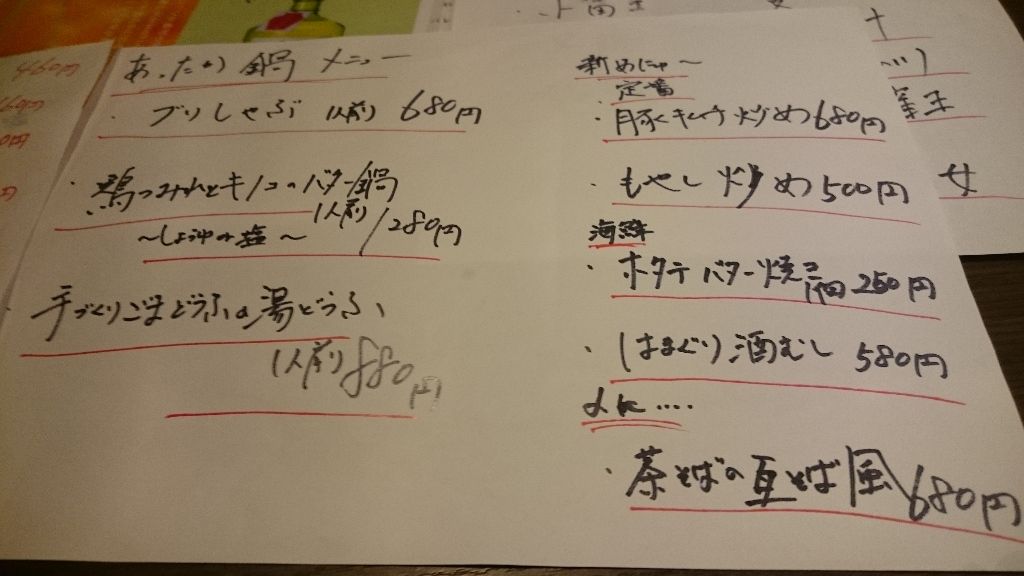 あったか鍋メニュー
・ブリしゃぶ 1人前 680円
・鶏つみれとキノコのバター鍋
1人前/1280円
〜しょうゆor塩〜
・手づくりごまどうふの湯どうふ
1人前 880円
新めにゅ〜
定番
・豚キムチ炒め 680円
・もやし炒め 500円
海鮮
・ホタテバター焼 1個 250円
・はまぐり酒むし 580円
〆に‥‥
・茶そばの瓦そば風 680円
460円
女